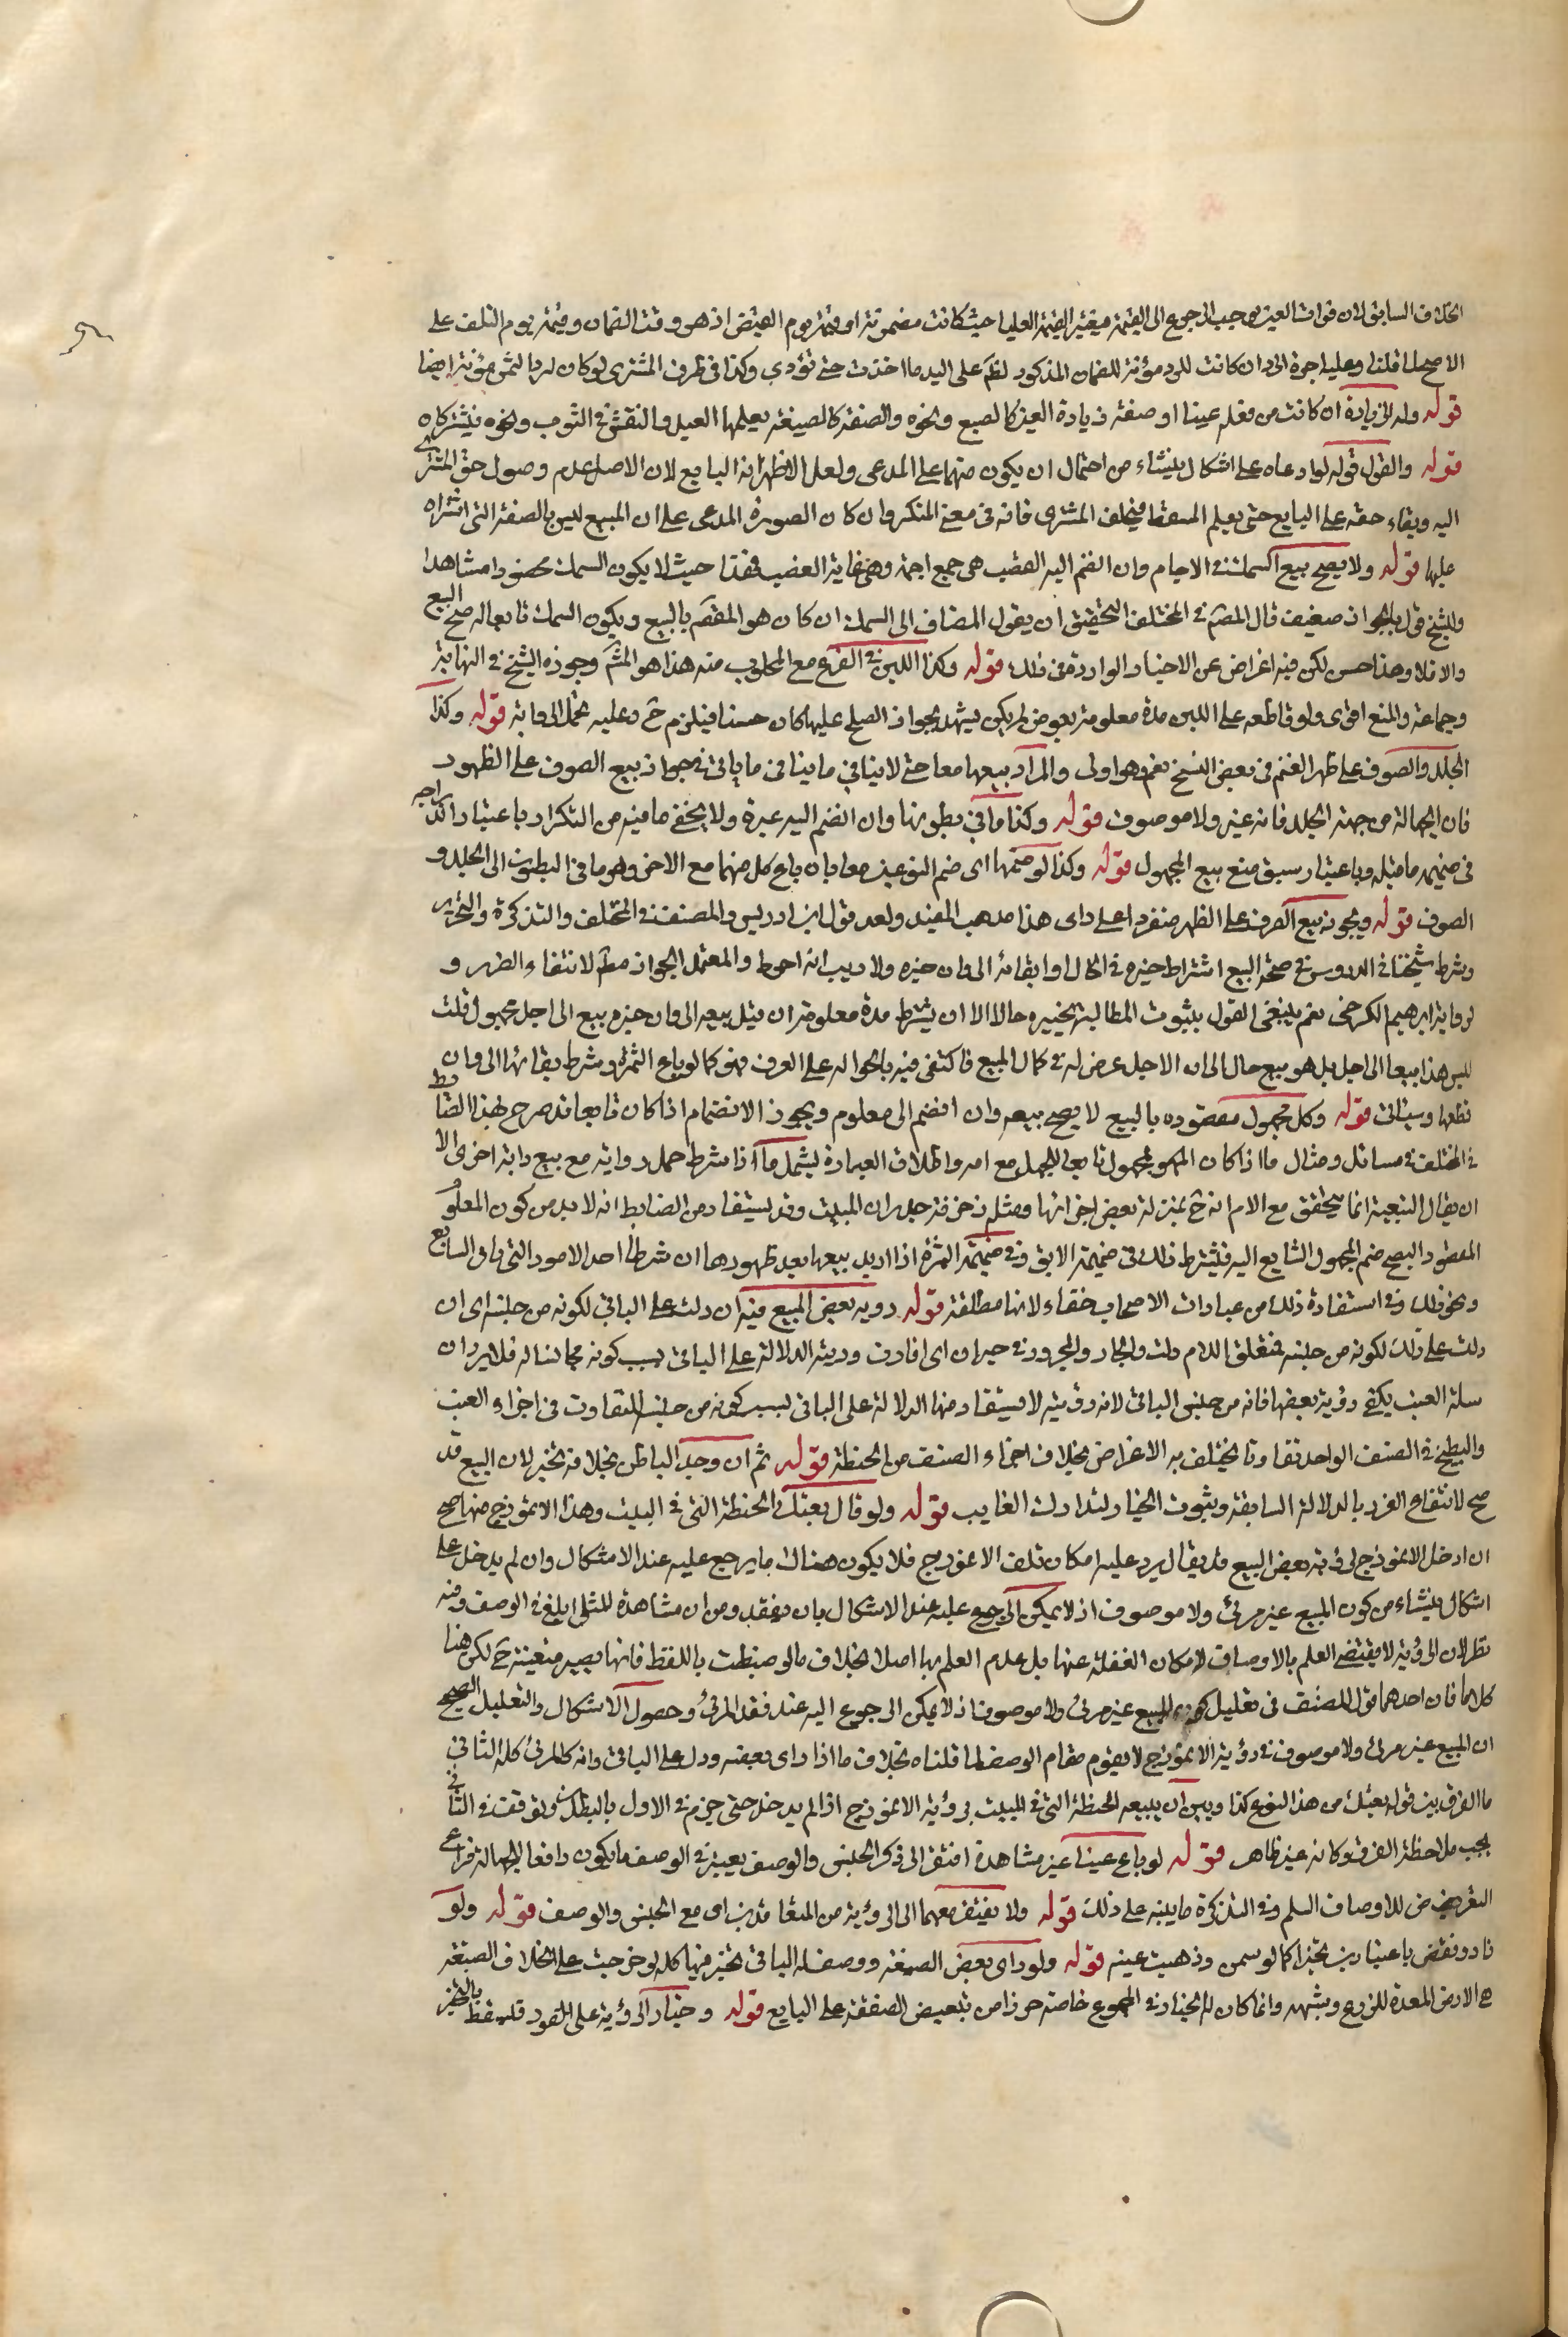 الخلاف السابق لان فوات العين يوجب الرجوع الى القيمة فيعتبر القيمة العليا حيث كانت مضمونة او قيمته يوم القبض اذ هو وقت الضمان وقيمته يوم التلف على
الاصح لما قلنا وعليه اجرة الرد ان كانت للرد مؤنة للضمان المذكور لظم على اليد ما اخذت حتى تؤدي وكذا في طرف المشتري لو كان لرد الثمن مؤنة ايضا
قوله وله الزيادة ان كانت من فعله عينا او صفة زيادة العين كالصبغ ونحوه والصفة كالصيغة يعلمها العبد والنقش في الثوب ونحوه فيشتركان
قوله والقول قوله لو ادعاه على اشكال ينشاء من احتمال ان يكون متهما على المدعي ولعل الاظهر انه البايع لان الاصل عدم وصول حق المشتري
اليه وبقاء حقه على البايع حتى يعلم المسقط فيحلف المشتري فانه في معنى المنكر وان كان الصورة المدعي على ان المبيع ليس بالصفة التي اشتراه
عليها قوله ولا يصح بيع السمك في الاجام وان انضم اليه القصب هي جمع اجمة وهي غاية القصب فقدا حيث لا يكون السمك محصورا مشاهدا
وللشيخ قول بالجواز ضعيف قال المصنف في المختلف التحقيق ان يقول المضاف الى السمك ان كان هو المقصود بالبيع ويكون السمك تابعا له صح البيع
والا فلا وهذا حسن لكن فيه اعراض عن الاخبار الواردة في ذلك قوله وكذا اللبن في الضرع مع المحلوب منه هذا هو المشهور وجوزه الشيخ في النهاية
وجماعة والمنع اقوى ولو قاطعه على اللبن مدة معلومة بعوض لم يكن بيعا بل يجوز الصلح عليها كان حسنا فيلزم ح وعليه تحمل الرواية قوله وكذا
الجلد والصوف على ظهر الغنم في بعض النسخ نعم وهو اولى والمراد بيعها معا حتى لا ينافي ما ياتي في جواز بيع الصوف على الظهور
فان الجهالة من جهة الجلد فانه غير ولا موصوف قوله وكذا ما في بطونها وان انضم اليه غيره ولا يخفى ما فيه من التكرار باعتبار اندراجه
في ضميمه ما قبله وباعتبار سبق منع بيع المجهول قوله وكذا لو ضمهما اى ضم النوعين معا بان باع كل منهما مع الاخر وهو ما في البطون الى الجلد و
الصوف قوله ويجوز بيع الصوف على الظهر منفردا على راى هذا مذهب المفيد ولعد قول ابن ادريس والمصنف في المختلف والتذكرة والتحرير
وشرط شيخنا في الدروس في صحة البيع اشتراط جزه في الحال او ابقائه الى وان جزه ولا ريب انه احوط والمعتمد الجواز مطلقا لانتفاء الظهر و
لرواية ابرهيم الكرخي نعم ينبغي القول بثبوت المطالبة بتخييره حالا الا ان يشترط مدة معلومة ان قيل بيعه الى وان جزه بيع الى اجل مجهول قلت
ليس هذا بيعا الى اجل بل هو بيع حال الى ان الاجل عرض له في كمال المبيع فاكتفى فيه بالحوالة على العرف فهو كما لو باع الثمرة وشرط بقائها الى وان
قطعها وسياتي قوله وكل مجهول مقصوده بالبيع لا يصح بيعه وان انضم الى معلوم ويجوز الانضمام اذا كان تابعا قد صرح بهذا الضابط
في المختلف في مسائل ومثال ما اذا كان المجهول تابعا الحمل مع امه واطلاق العبارة يشمل ما اذا شرط حمل دوابه مع بيع دابة اخرى الا
ان يقال التبعية انما يتحقق مع الام انه ح بمنزلة بعض اجزائها ومثله زخرفة جدران البيت وقد يستفاد من الضابط انه لا بد من كون المعلوم
المقصود ليصح ضم المجهول الشايع اليه فيشترط ذلك في ضميمة الابق وفي ضميمة الثمرة اذا اريد بيعها بعد ظهورها ان شرطا احد الامور التي ياتي السابع
ونحو ذلك وفي استفادة ذلك من عبارات الاصحاب خفاء لانها مطلقة قوله رؤية بعض المبيع فيه ان دلت على الباقي لكونه من جنسه اى ان
دلت على ذلك لكونه من جنسه فتعلق اللام دلت والجار والمجرور في حيزان اى افادت ورؤيته الدلالة على الباقي بسبب كونه مجانسا له فلا يرد ان
سلة العنب يكفي رؤية بعضها فانه من جنس الباقي لانه رؤيته لا يستفاد منها الدلالة على الباقي بسبب كونه من جنسه للتفاوت في اجزاء العنب
والبطيخ في الصنف الواحد تفاوتا يختلف به الاغراض بخلاف اجزاء الصنف من الحنطة قوله ثم ان وجد الباطن بخلافه تخير لان البيع قد
صح لانتفاء الغرر بالدلالة السابقة وثبوت الخيار لتدارك الغايب قوله ولو قال بعتك الحنطة التي في البيت وهذا الانموذج منها صح
ان ادخل الانموذج لرؤية بعض المبيع قد يقال يرد عليه امكان تلف الانموذج فلا يكون هناك ما يرجع عليه عند الاشكال وان لم يدخل على
اشكال ينشاء من كون المبيع غير مرئي ولا موصوف اذ لا يمكن الرجوع عليه عند الاشكال بان يفقد ومن ان مشاهدة المثل ابلغ في الوصف وفيه
نظر لان الرؤية لا يقتضي العلم بالاوصاف لامكان الغفلة عنها بل عدم العلم بها اصلا بخلاف ما لو ضبطت باللفظ فانها يصير متعينة ح لكن هنا
كلاما فان احدهما قول المصنف في تعليل كون المبيع غير مرئي ولا موصوف اذ لا يمكن الرجوع اليه عند فقد المرئي وحصول الاشكال والتعليل الصحيح
ان المبيع غير مرئي ولا موصوف فرؤية الانموذج لا يقوم مقام الوصف لما قلناه بخلاف ما اذا راى بعضه ودل على الباقي وانه كالمرئي كله الثاني
ما الفرق بين قوله بعتك من هذا النوع كذا وبين ان يبيعه الحنطة التي في البيت برؤية الانموذج اذا لم يدخل حتى جزم في الاول بالبطلان وتوقف في الثاني
يجب ملاحظة الفرق وكانه غير ظاهر قوله لو باع عينا غير مشاهدة افتقر الى ذكر الجنس والوصف يعتبر في الوصف ما يكون دافعا للجهالة فراعى
التعرض للاوصاف السلم وفي التذكرة ما ينبه على ذلك قوله ولا يفتقر معهما الى الرؤية من المتعاقدين اى مع الجنس والوصف قوله ولو
زاد ونقص باعتبارين تخيرا كما لو سمن وذهبت عينه قوله ولو راى بعض الصيغة ووصف له الباقي تخير فيها كله لو خرجت على الخلاف الصنعة
هي الارض المعدة للزرع وشبهه وانما كان له الخيار في المجموع خاصة حرزا من تبعيض الصفقة على البايع قوله وخيار الرؤية على الفور فليسقط بالتخير